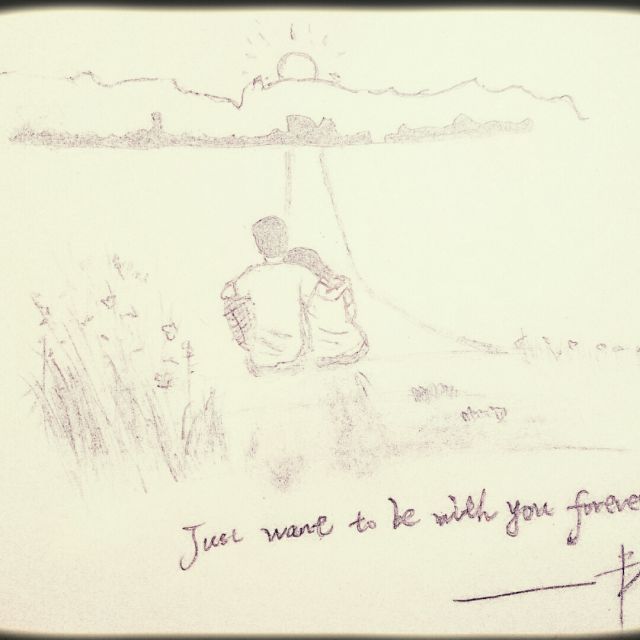 Just want to be with you foreve